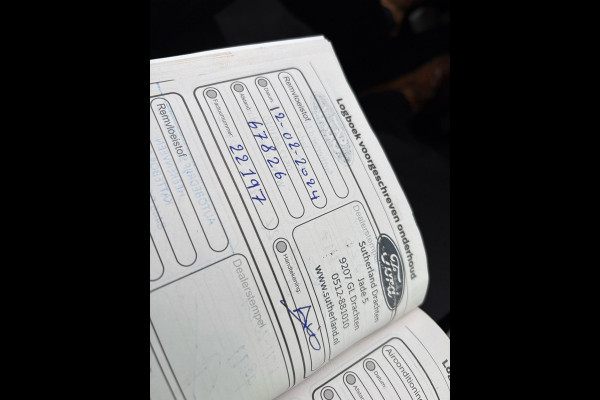 Logboek voorgeschreven onderhoud
Remvloeistof
Datum:
12-02-2024
Afstand:
67826
Factuurnummer:
22197
Dealerstempel
Ford
Sutherland Drachten
Jade 5
9207 GL Drachten
0512-881010
www.sutherland.nl
Handtekening:
Remvloeistof
Dealerstempel
Airconditioning
Datum:
Afstand: